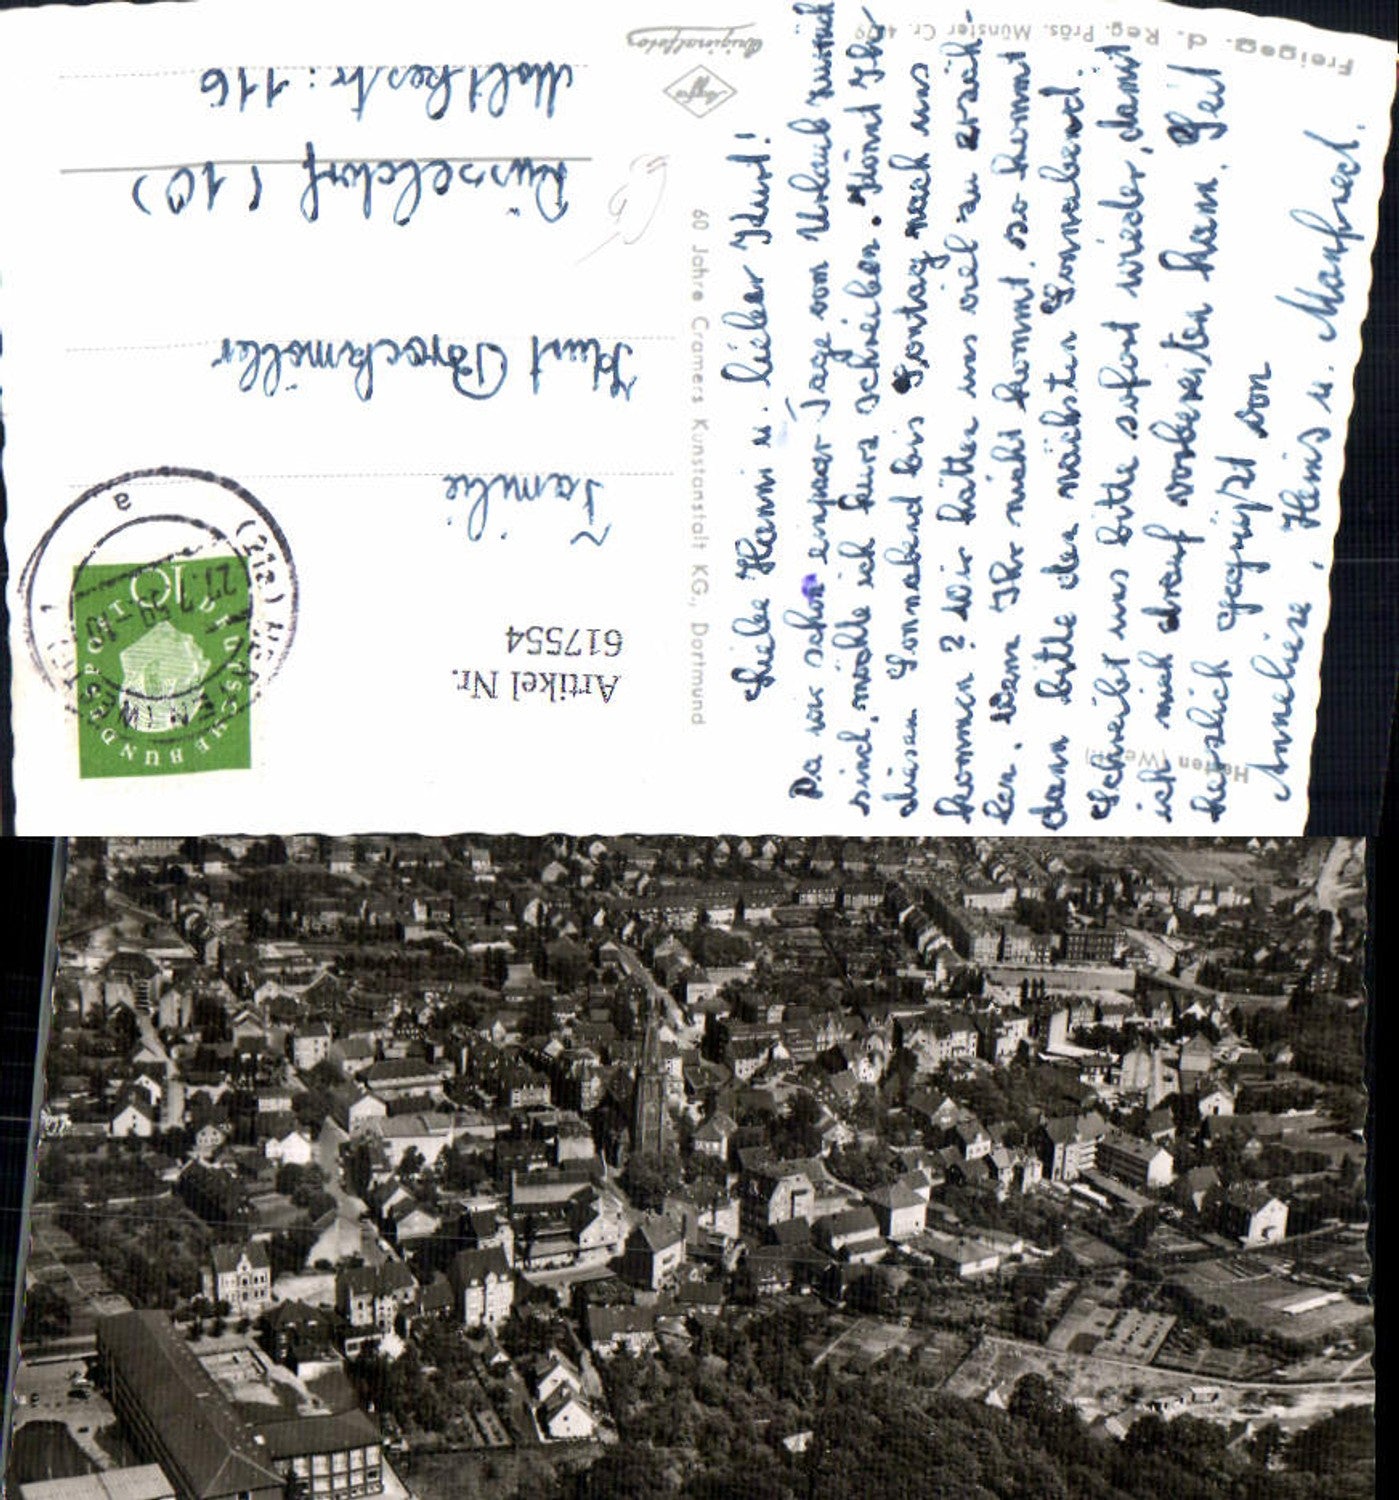 Freigeg. d. Reg. Präs. Münster Cr. 4179
Herten (Westf.)
Liebe Hanni u. lieber Kurt!
Da wir schon einpaar Tage vom Urlaub zurück
sind, möchte ich kurz schreiben. Könnt Ihr
diesen Sonnabend bis Sontag nach uns
kommen? Wir hätten uns viel zu erzäh-
len. Wenn Ihr nicht kommt, so kommt
dann bitte den nächsten Sonnabend.
Schreibt uns bitte sofort wieder, damit
ich mich drauf vorbereiten kann. Seit
herzlich gegrüßt von
Anneliese, Heinz u. Manfred.
60 Jahre Cramers Kunstanstalt KG., Dortmund
Agfa
Originalfotos
DEUTSCHE BUNDESPOST
10
(21a)
a
Artikel Nr.
617554
Familie
Kurt Brockmöller
Düsseldorf (10)
Moltkestr: 116